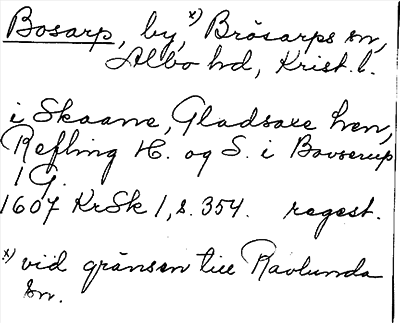 Bosarp, by, x) Brösarps sn,
Albo hd, Krist. l.
i Skaane, Gladsaxe hen,
Refling H. og S. i Bovserup
1 G.
1607 KrSk 1, s. 354. regest.
x) vid gränsen till Ravlunda
sn.